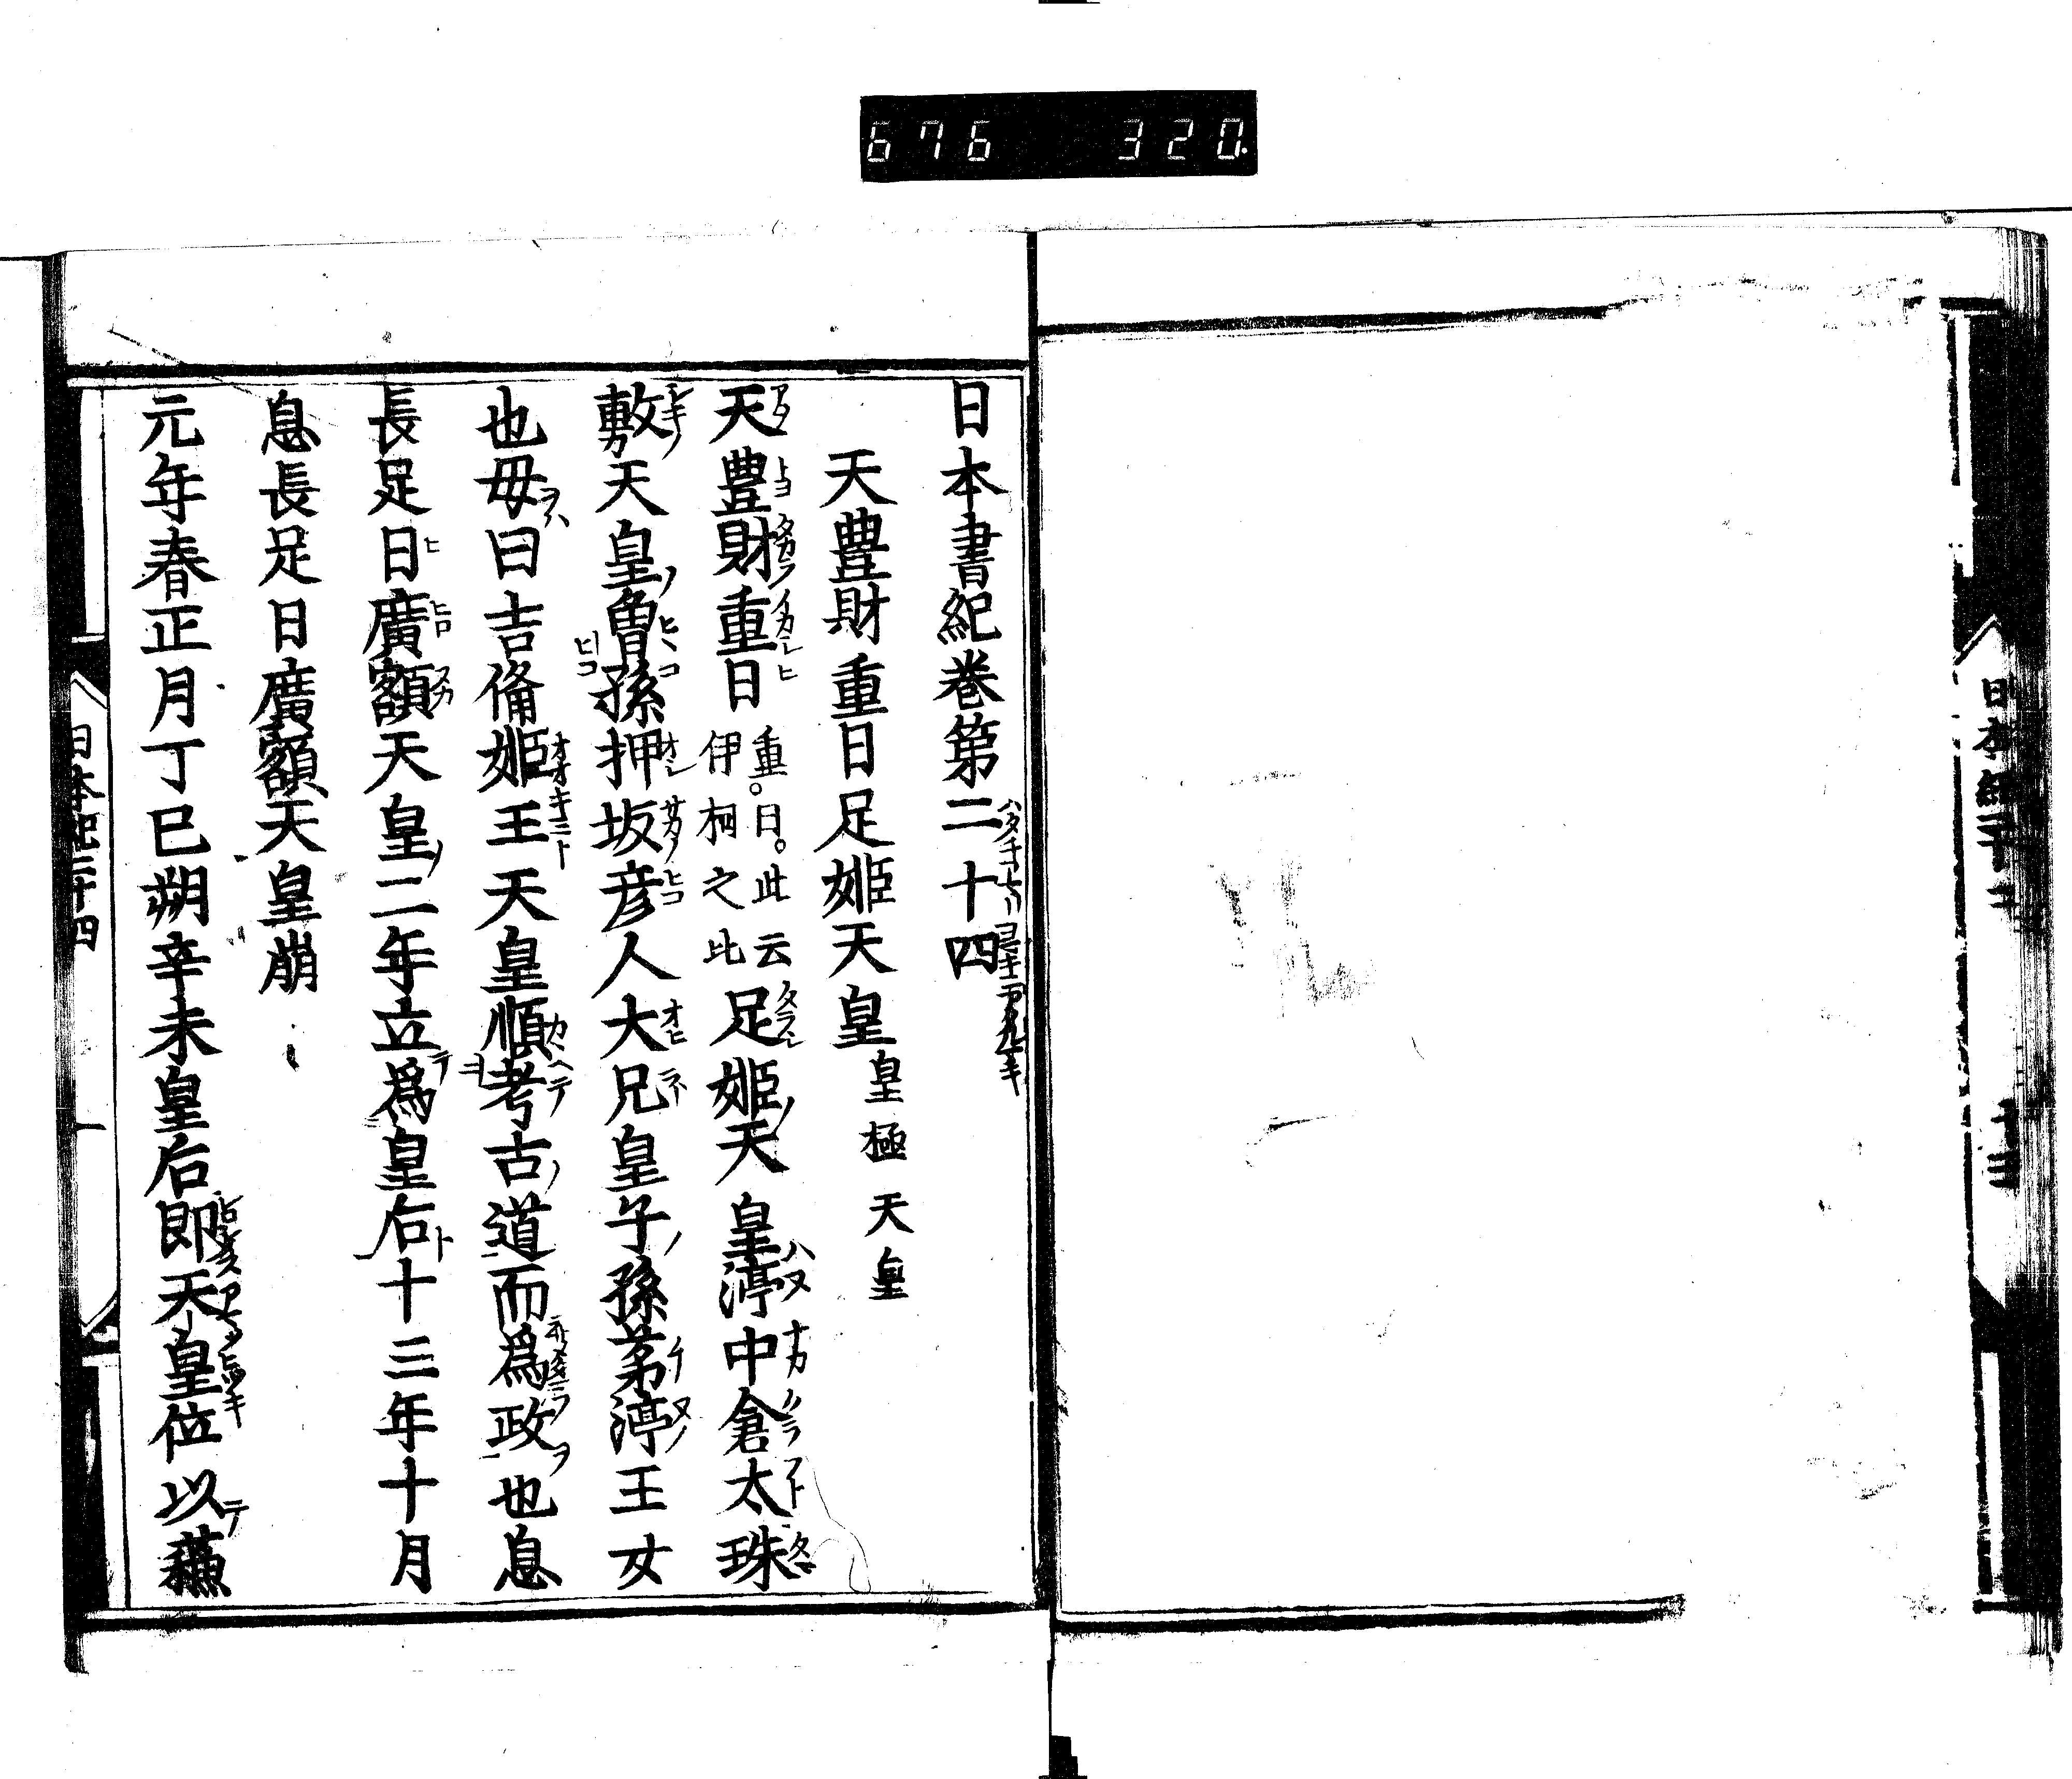 676 320
日本書紀巻第二十四
天豊財重日足姫天皇 皇極天皇
天豊財重日 重。日。此云 伊柯之比 足姫天皇渟中倉太珠
敷天皇曽孫押坂彦人大兄皇子孫茅渟王女
也母曰吉備姫王天皇順考古道而爲政也息
長足日廣額天皇二年立爲皇后十三年十月
息長足日廣額天皇崩
元年春正月丁巳朔辛未皇后即天皇位以蘓
日本紀二十四 一